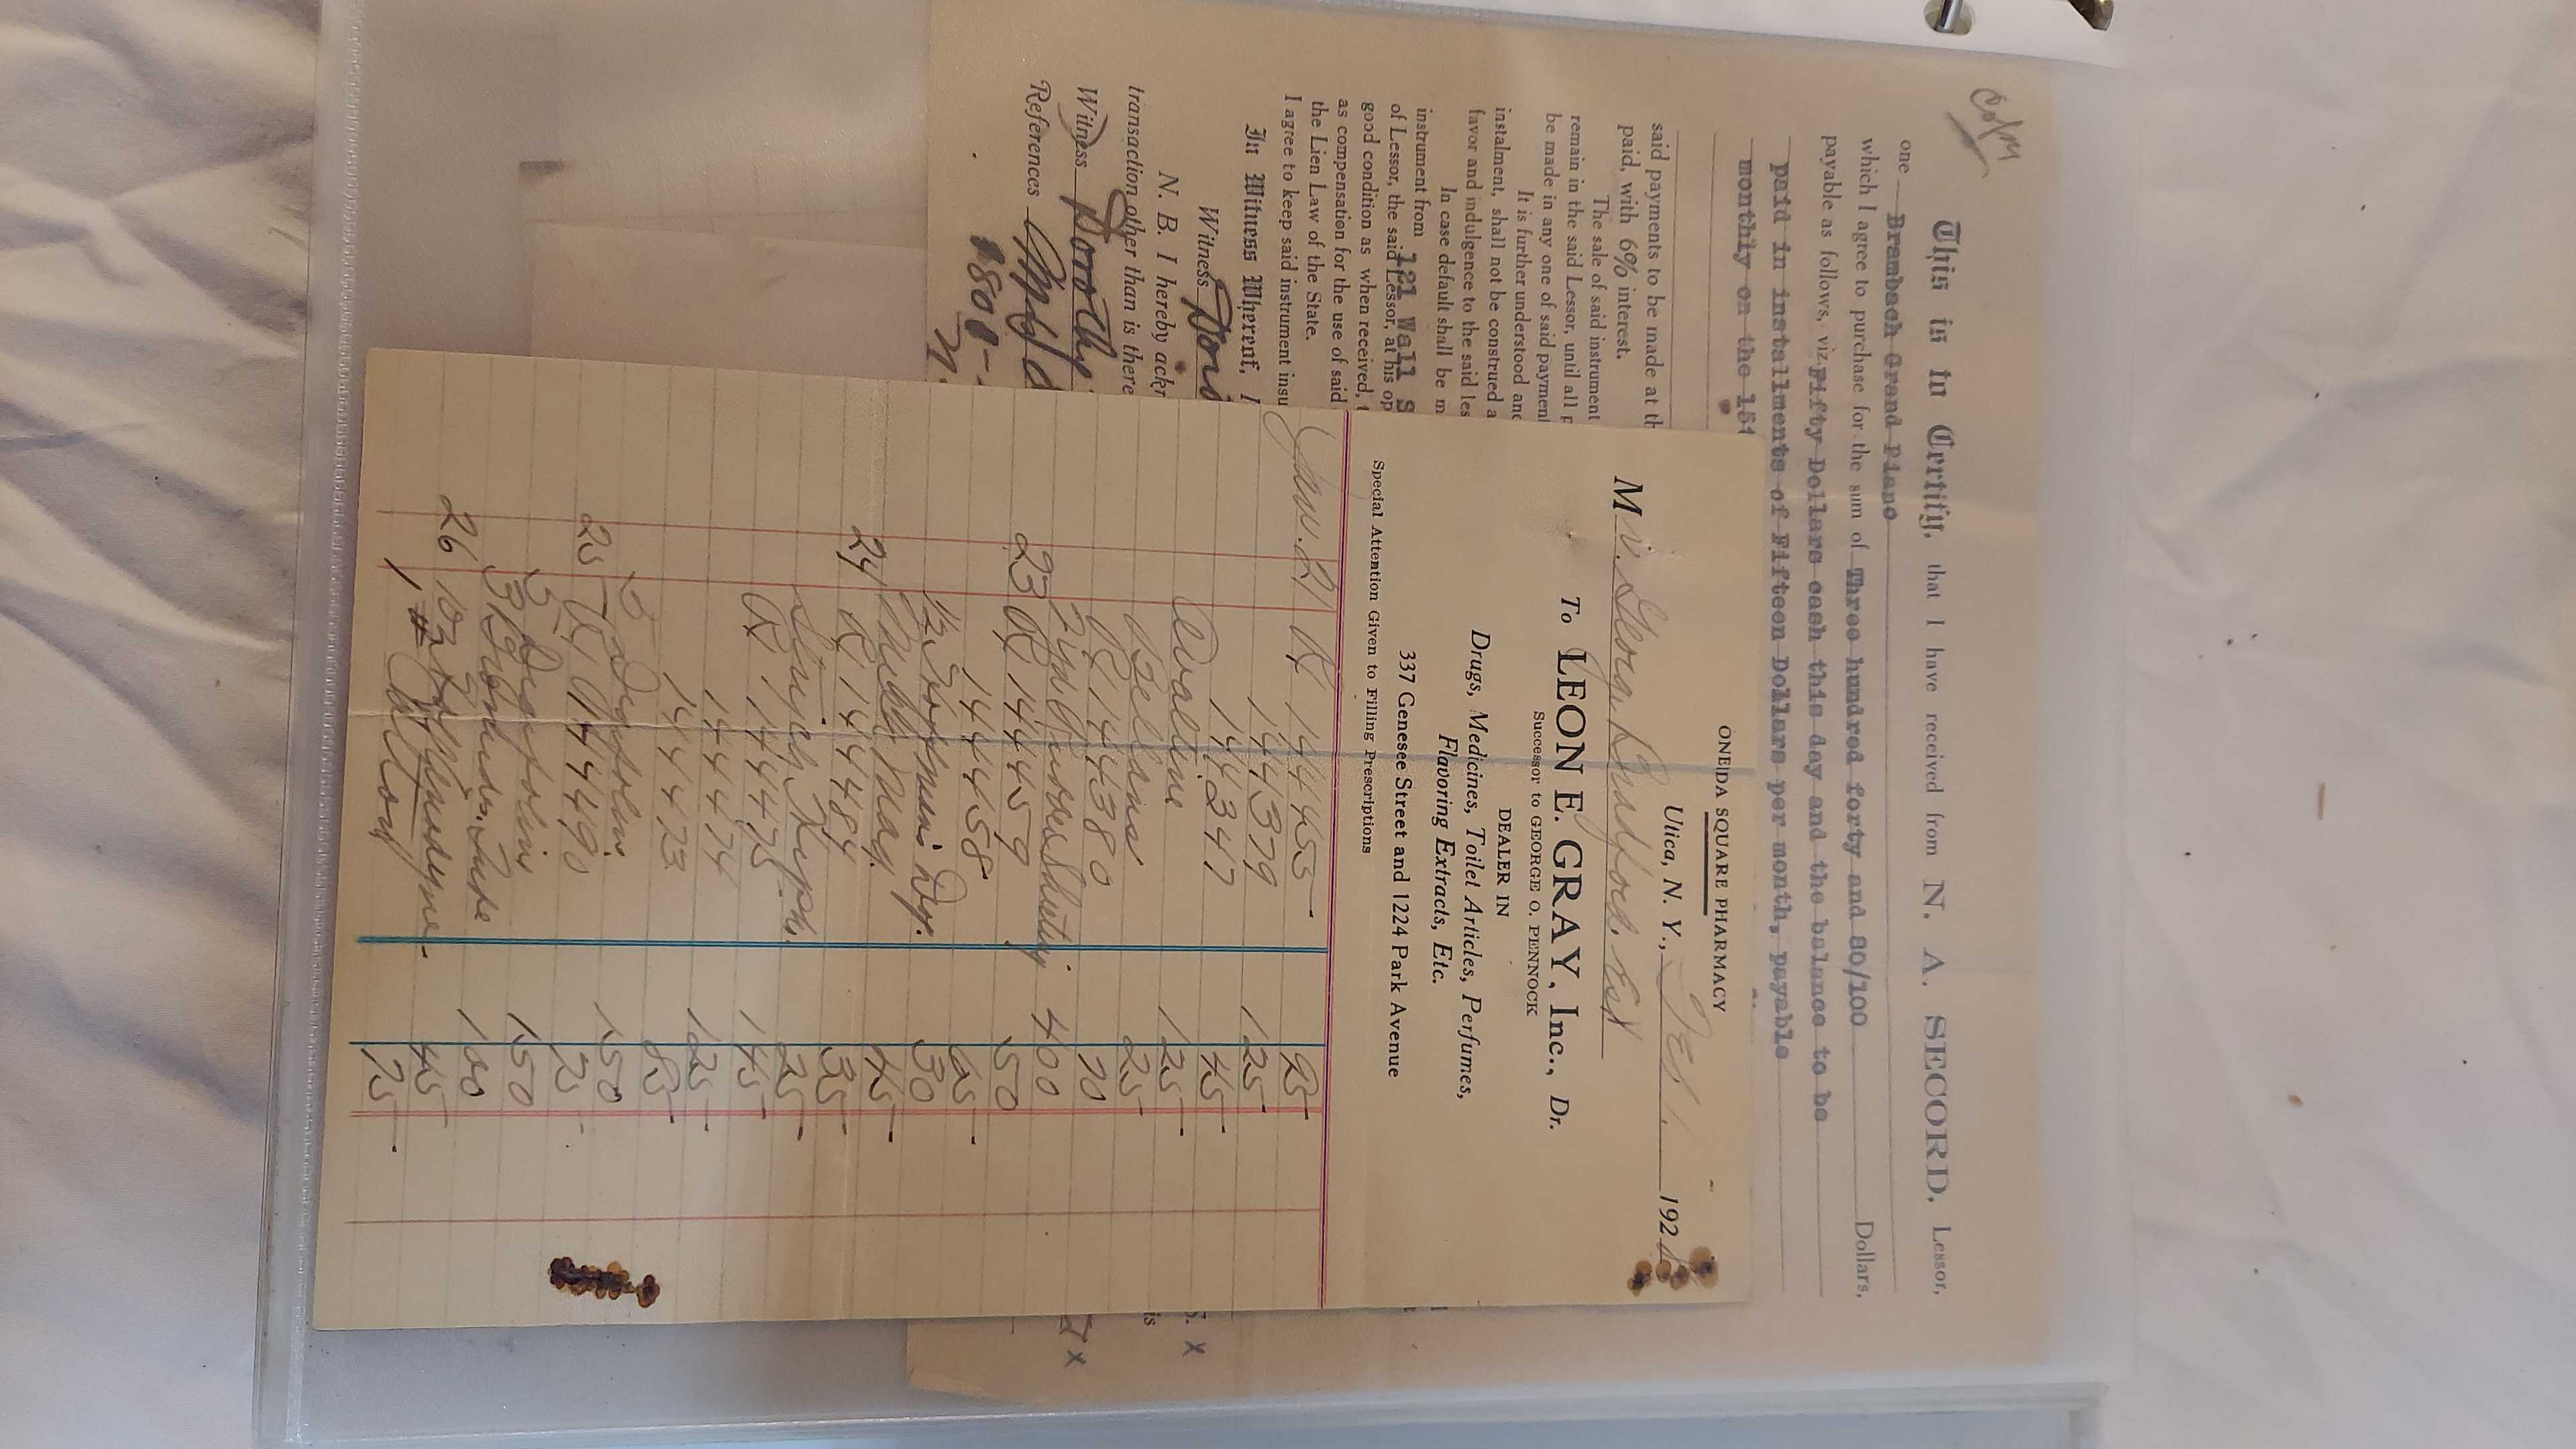 ONEIDA SQUARE PHARMACY
Utica, N. Y., Feb. 1 192
Mr. George Bradford, Est
To LEON E. GRAY, Inc., Dr.
Successor to GEORGE O. PENNOCK
DEALER IN
Drugs, Medicines, Toilet Articles, Perfumes,
Flavoring Extracts, Etc.
337 Genesee Street and 1224 Park Avenue
Special Attention Given to Filling Prescriptions
Jan. 21 Rx 144455 95
144379 1 25
144347 45
Ovaltine 1 25
25
Rx 144380 70
2 yd 4 00
23 Rx 144459 50
144458 65
1/2 30
24 Milk Mag. 45
Rx 144484 35
25
Rx 144475 1 45
144474 1 25
144473 85
Digifolin 1 50
25 Rx 144490 75
Digifolin 1 50
3 Tube 1 00
26 10 45
1 # Cotton 75
This is to Certify, that I have received from N. A. SECORD, Lessor,
one Brambach Grand Piano
which I agree to purchase for the sum of Three hundred forty and 80/100 Dollars,
payable as follows, viz. Fifty Dollars cash this day and the balance to be
paid in installments of Fifteen Dollars per month, payable
monthly on the 15t
said payments to be made at th
paid, with 6% interest.
The sale of said instrument
remain in the said Lessor, until all p
be made in any one of said paymen
It is further understood and
instalment, shall not be construed a
favor and indulgence to the said les
In case default shall be m
instrument from 121 Wall S
of Lessor, the said Lessor, at his op
good condition as when received, t
as compensation for the use of said
the Lien Law of the State.
I agree to keep said instrument insu
In Witness Whereof, I
Witness
N. B. I hereby ackn
transaction other than is there
Witness Dorothy
References